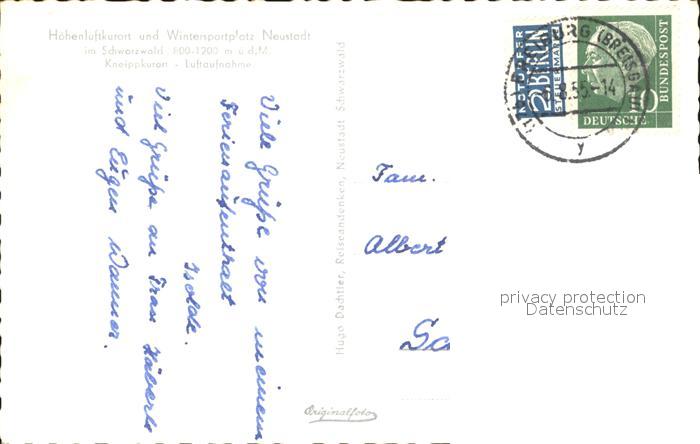 Höhenluftkurort und Wintersportplatz Neustadt
im Schwarzwald 800-1200 m ü.d.M.
Kneippkurort - Luftaufnahme
Viele Grüße von meinem
Ferienaufenthalt
Isolde.
Viele Grüße an Frau Häberle
und Eugen Wanner.
Hugo Dachtler, Reiseandenken, Neustadt Schwarzwald
Originalfoto
NOTOPFER
2 BERLIN
STEUERMARKE
FREIBURG (BREISGAU)
8.55-14
y
10
DEUTSCHE
BUNDESPOST
Fam.
Albert
Sa
privacy protection
Datenschutz